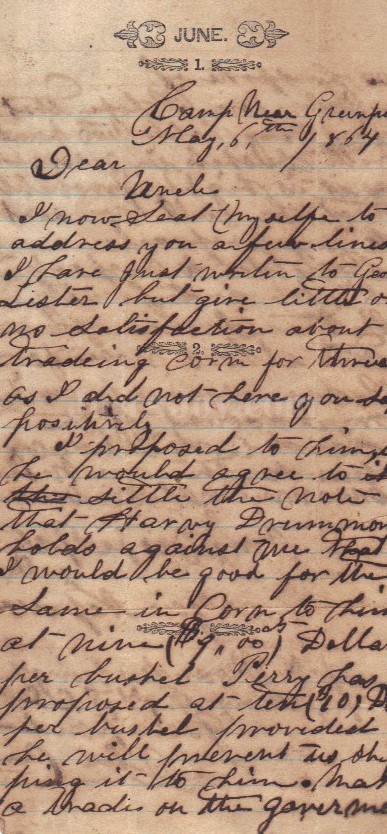 JUNE.
1.
Camp Near Greenpo
May, 6th, 1864
Dear
Uncle
I now Seat Myselfe to
address you a few lines
I have Just writen to Geo
Lister but give little o
no Satisfaction about
2.
tradeing Corn for
as I did not here you sa
positively
I proposed to him
he would agree to
the settle the note
that Harvy Drummon
holds against me that
I would be good for the
Same in Corn to him
at nine ($9,00) Dolla
per bushel Perry has
proposed at ten (10) D
per bushel provided
he will prevent us Shi
ping it to him. Mak
a trade on the goverme